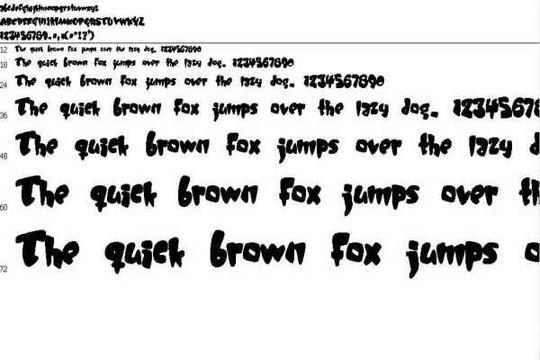 abcdefghijklmnopqrstuvwxyz
ABCDEFGHIJKLMNOPQRSTUVWXYZ
123456789.:,;(:*!?')
12 The quick brown fox jumps over the lazy dog. 1234567890
18 The quick brown fox jumps over the lazy dog. 1234567890
24 The quick brown fox jumps over the lazy dog. 1234567890
36 The quick brown fox jumps over the lazy dog. 12345678
48 The quick brown fox jumps over the lazy d
60 The quick brown fox jumps over th
72 The quick brown fox jumps o